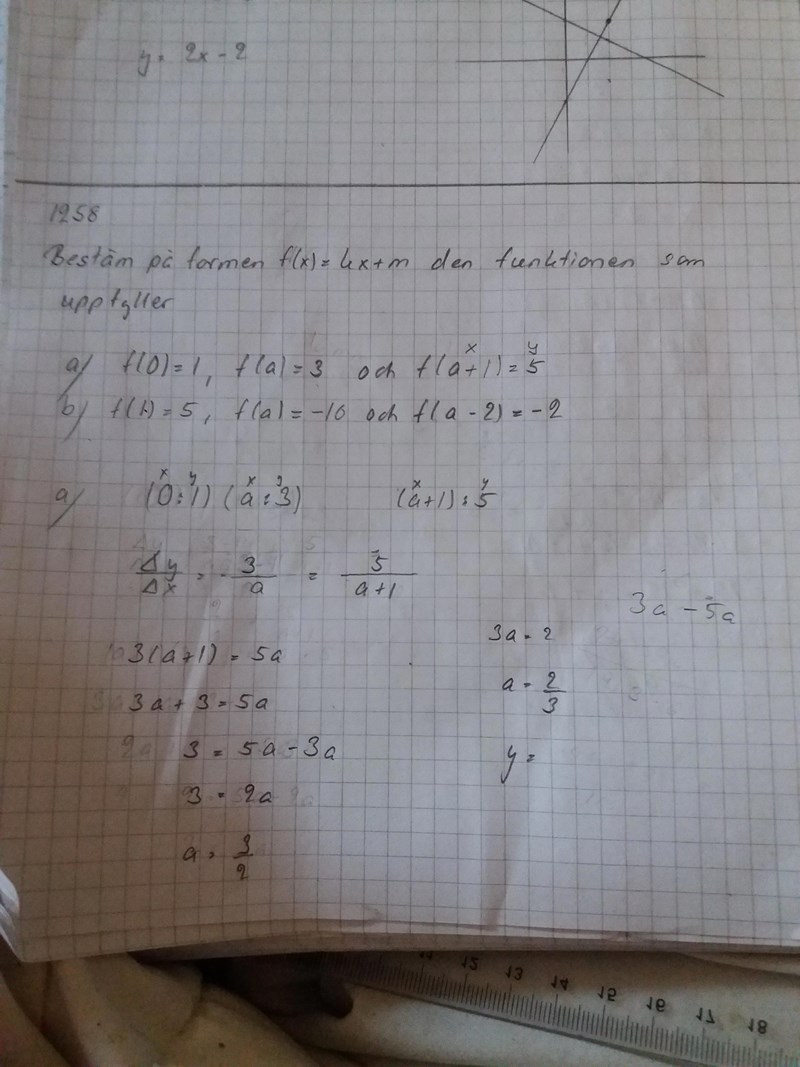 y = 2x - 2
1258
Bestäm på formen f(x) = kx + m den funktionen som
uppfyller
x y
a) f(0) = 1, f(a) = 3 och f(a+1) = 5
b) f(1) = 5, f(a) = -10 och f(a - 2) = -2
x y x y x y
a) (0:1) (a:3) (a+1):5
Δy/Δx = 3/a = 5/a+1
3a - 5a
3a = 2
3(a+1) = 5a
a = 2/3
3a + 3 = 5a
3 = 5a - 3a
y =
3 = 2a
a = 3/2
11 12 13 14 15 16 17 18